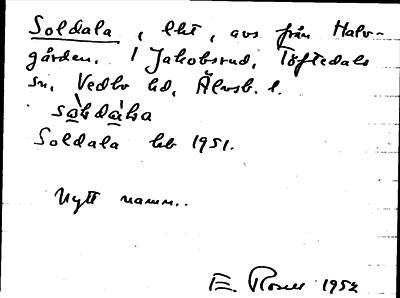 Soldala, lht, avs från Halv-
gården. 1 Jakobsrud, Töftedals
sn, Vedbo hd, Älvsb. l.
Soldala lht 1951.
Nytt namn..
E. Rosell 1952